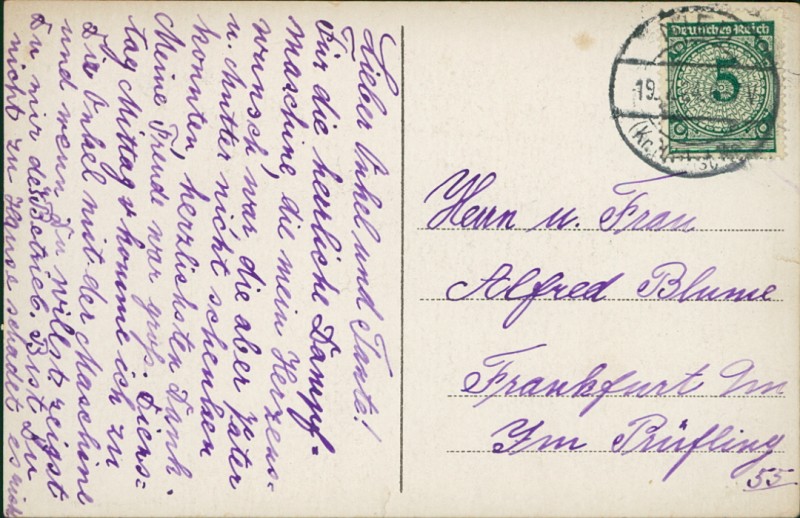 Lieber Onkel und Tante!
Für die herrliche Dampf-
maschine die mein Herzens-
wunsch, war die aber Vater
u. Mutter nicht schenken
konnten, herzlichsten Dank.
Meine Freude war groß. Diens-
tag Mittag komme ich zu
Dir Onkel mit der Maschine
und wenn Du willst zeigst
Du mir den Betrieb. Bist Du
nicht zu Hause schadet es nicht
Deutsches Reich
5
19.
Herrn u. Frau
Alfred Blume
Frankfurt a/m
Im Prüfling
55